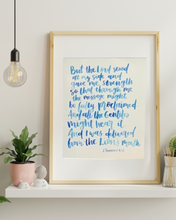 But the Lord stood
at my side and
gave me strength
so that through me
the message might
be fully proclaimed
And all the Gentiles
might hear it
And I was delivered
from the lions mouth
2 Timothy 4:17